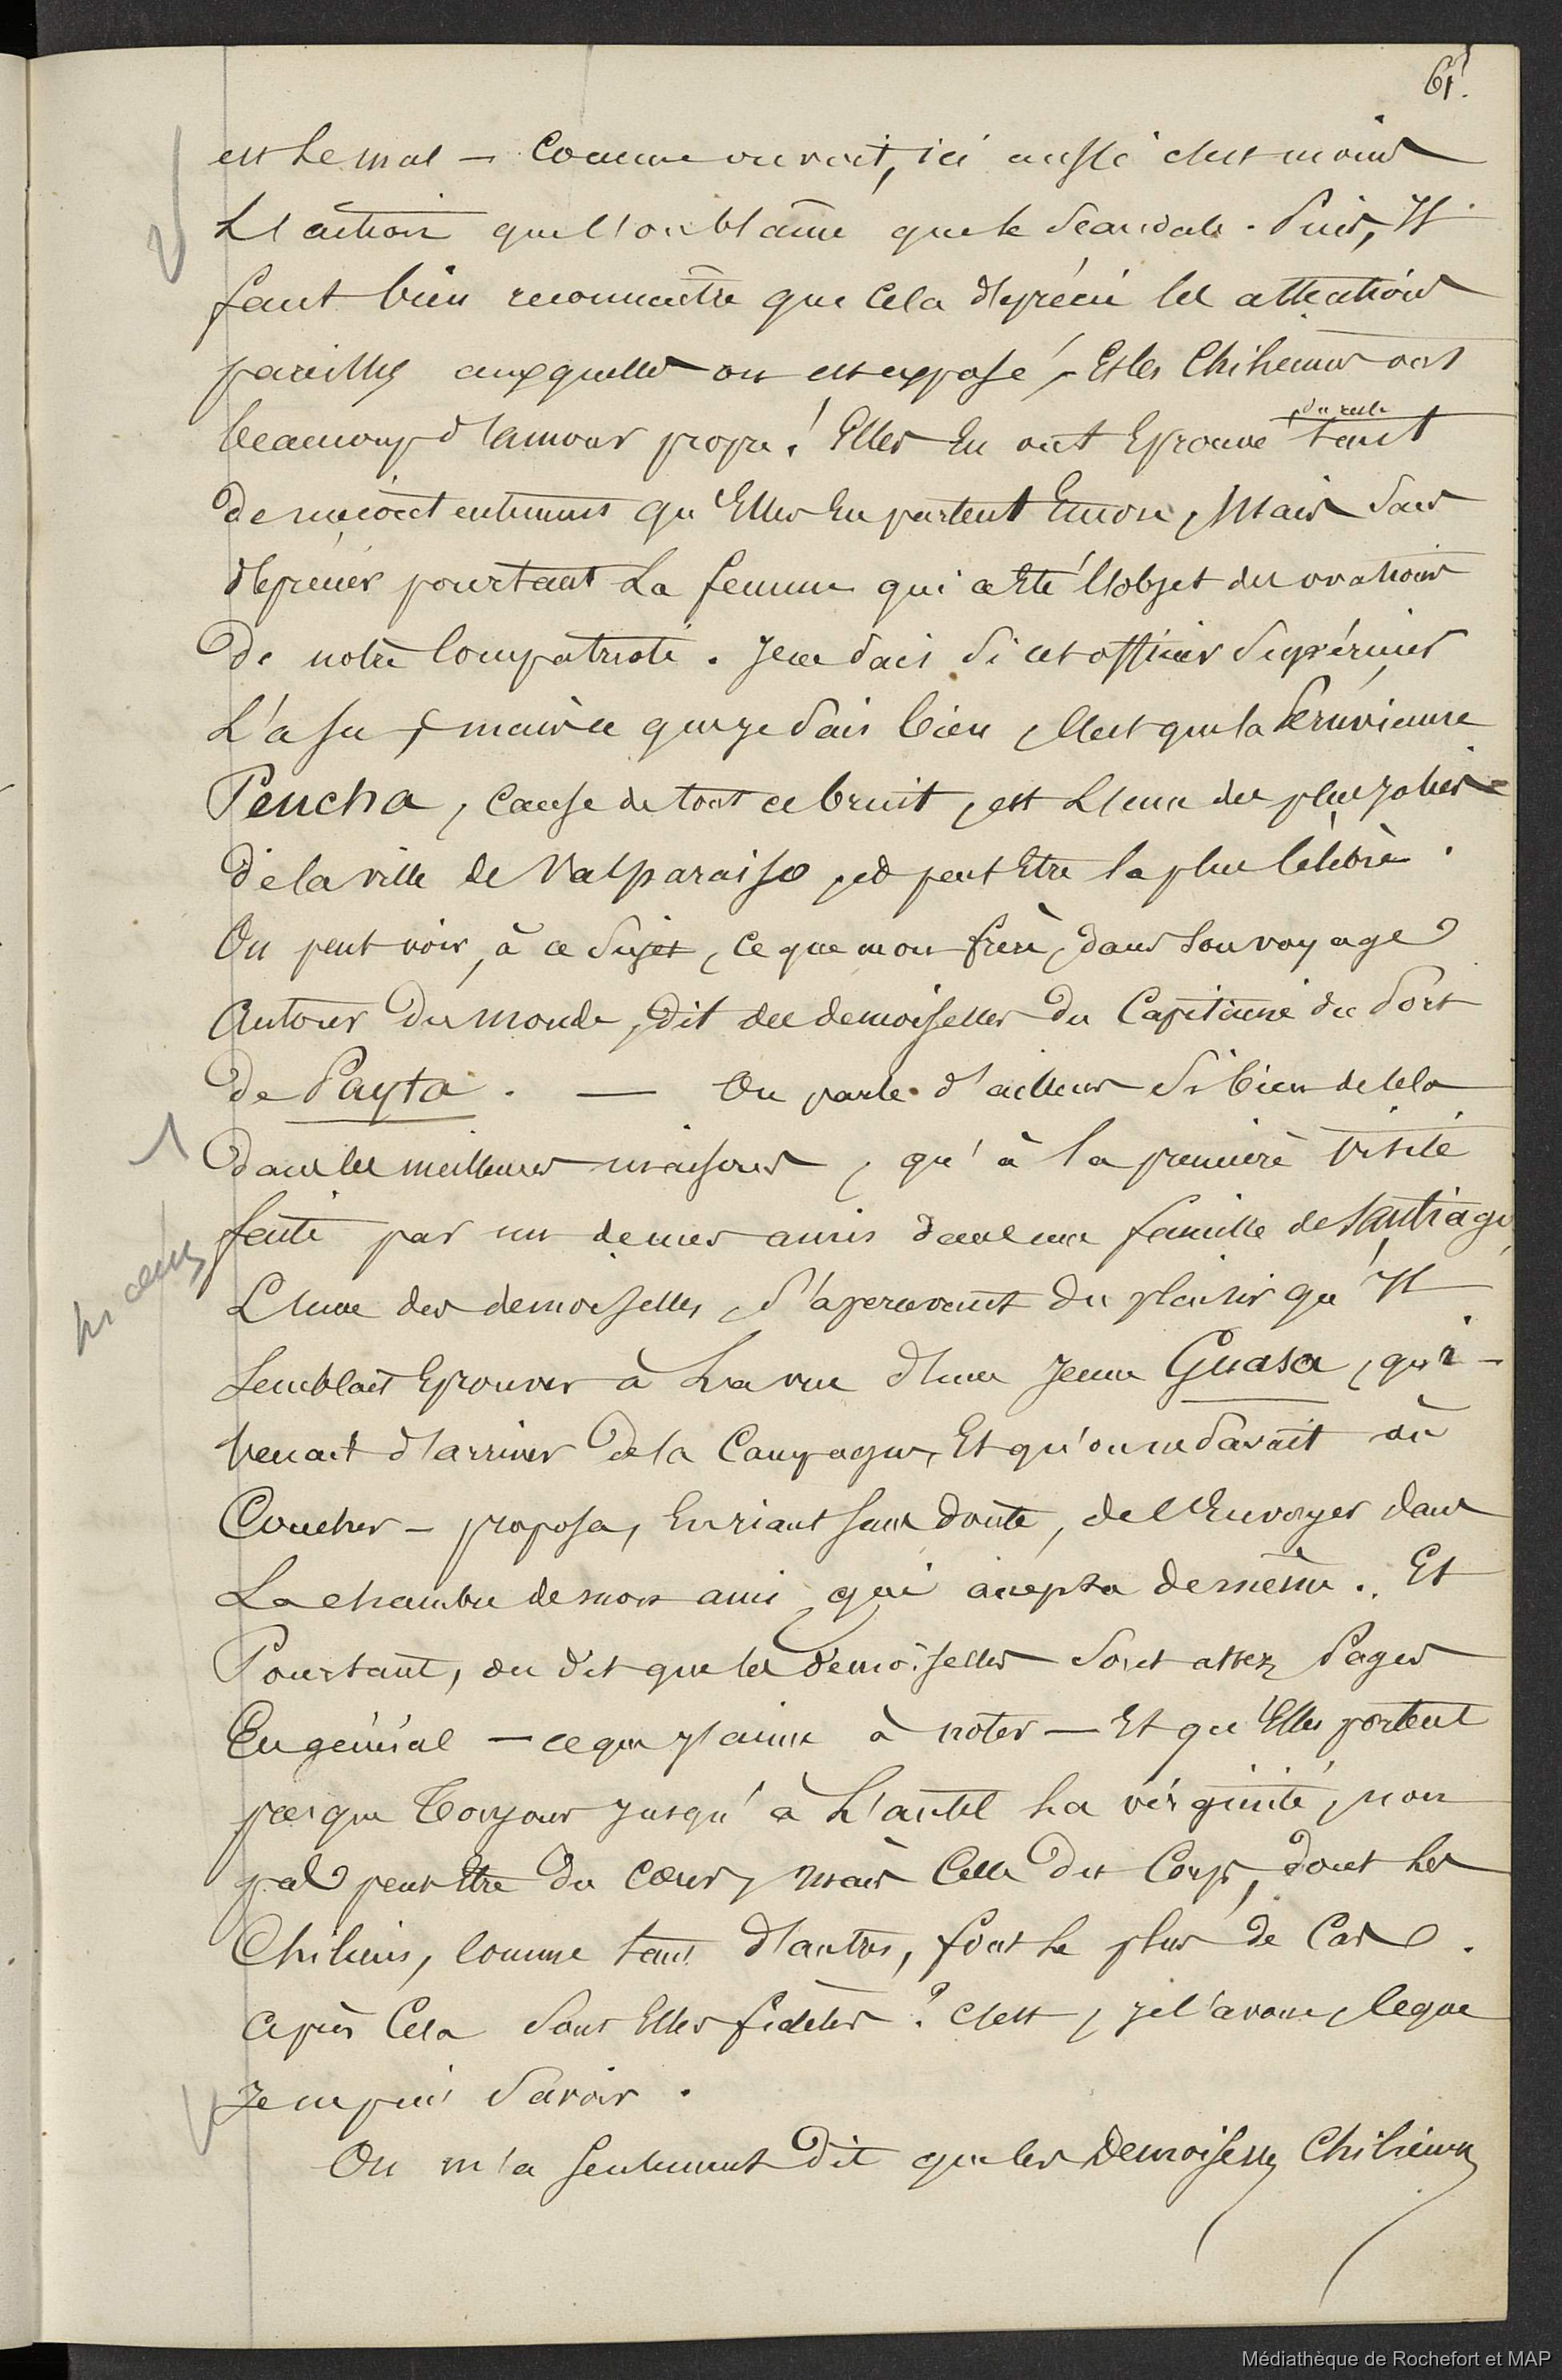 61.
est le mal — Comme on voit, ici aussi c'est moins
L'action que l'on blâme que le scandale. Puis, Il
faut bien reconnaître que cela déprécie les attentions
pareilles auxquelles on est exposé, Et les Chiliennes ont
beaucoup d'amour propre! Elles En ont Eprouvé du reste tant
de mécontentement qu'Elles En parlent Encore, Mais sans
déprécier pourtant La femme qui a Eté l'objet des ovations
De notre Compatriote. Je ne sais si cet officier Supérieur
L'a su, mais ce que je sais bien, C'est que la Péruvienne
Pencha, cause de tout ce bruit, est L'une des plus jolies
de la ville de Valparaiso, et peut Etre la plus célèbre.
On peut voir, à ce sujet, ce que mon frère, dans son voyage
Autour Du monde, dit des demoiselles du Capitaine du Port
de Payta. — On parle d'ailleurs si bien de cela
Dans les meilleures maisons, qu'à la première visite
faite par un de mes amis dans une famille de Santiago,
L'une des demoiselles, s'apercevant du plaisir qu'Il
Semblait Eprouver à La vue d'une jeune Guasa, qui -
venait d'arriver de la Campagne, Et qu'on ne savait où
Coucher — proposa, En riant sans doute, de l'Envoyer dans
La chambre de mon ami, qui accepta de même. Et
Pourtant, on dit que les demoiselles sont assez sages
En général — ce que j'aime à noter — Et qu'Elles portent
presque toujours jusqu'à L'autel la virginité, non
pas peut Etre du cœur, mais Celle du Corps, dont les
Chiliens, comme tant d'autres, font le plus de Cas.
Après Cela sont Elles fidèles? C'est, je l'avoue, ce que
Je ne puis savoir.
On m'a seulement Dit que les Demoiselles Chiliennes
Médiathèque de Rochefort et MAP